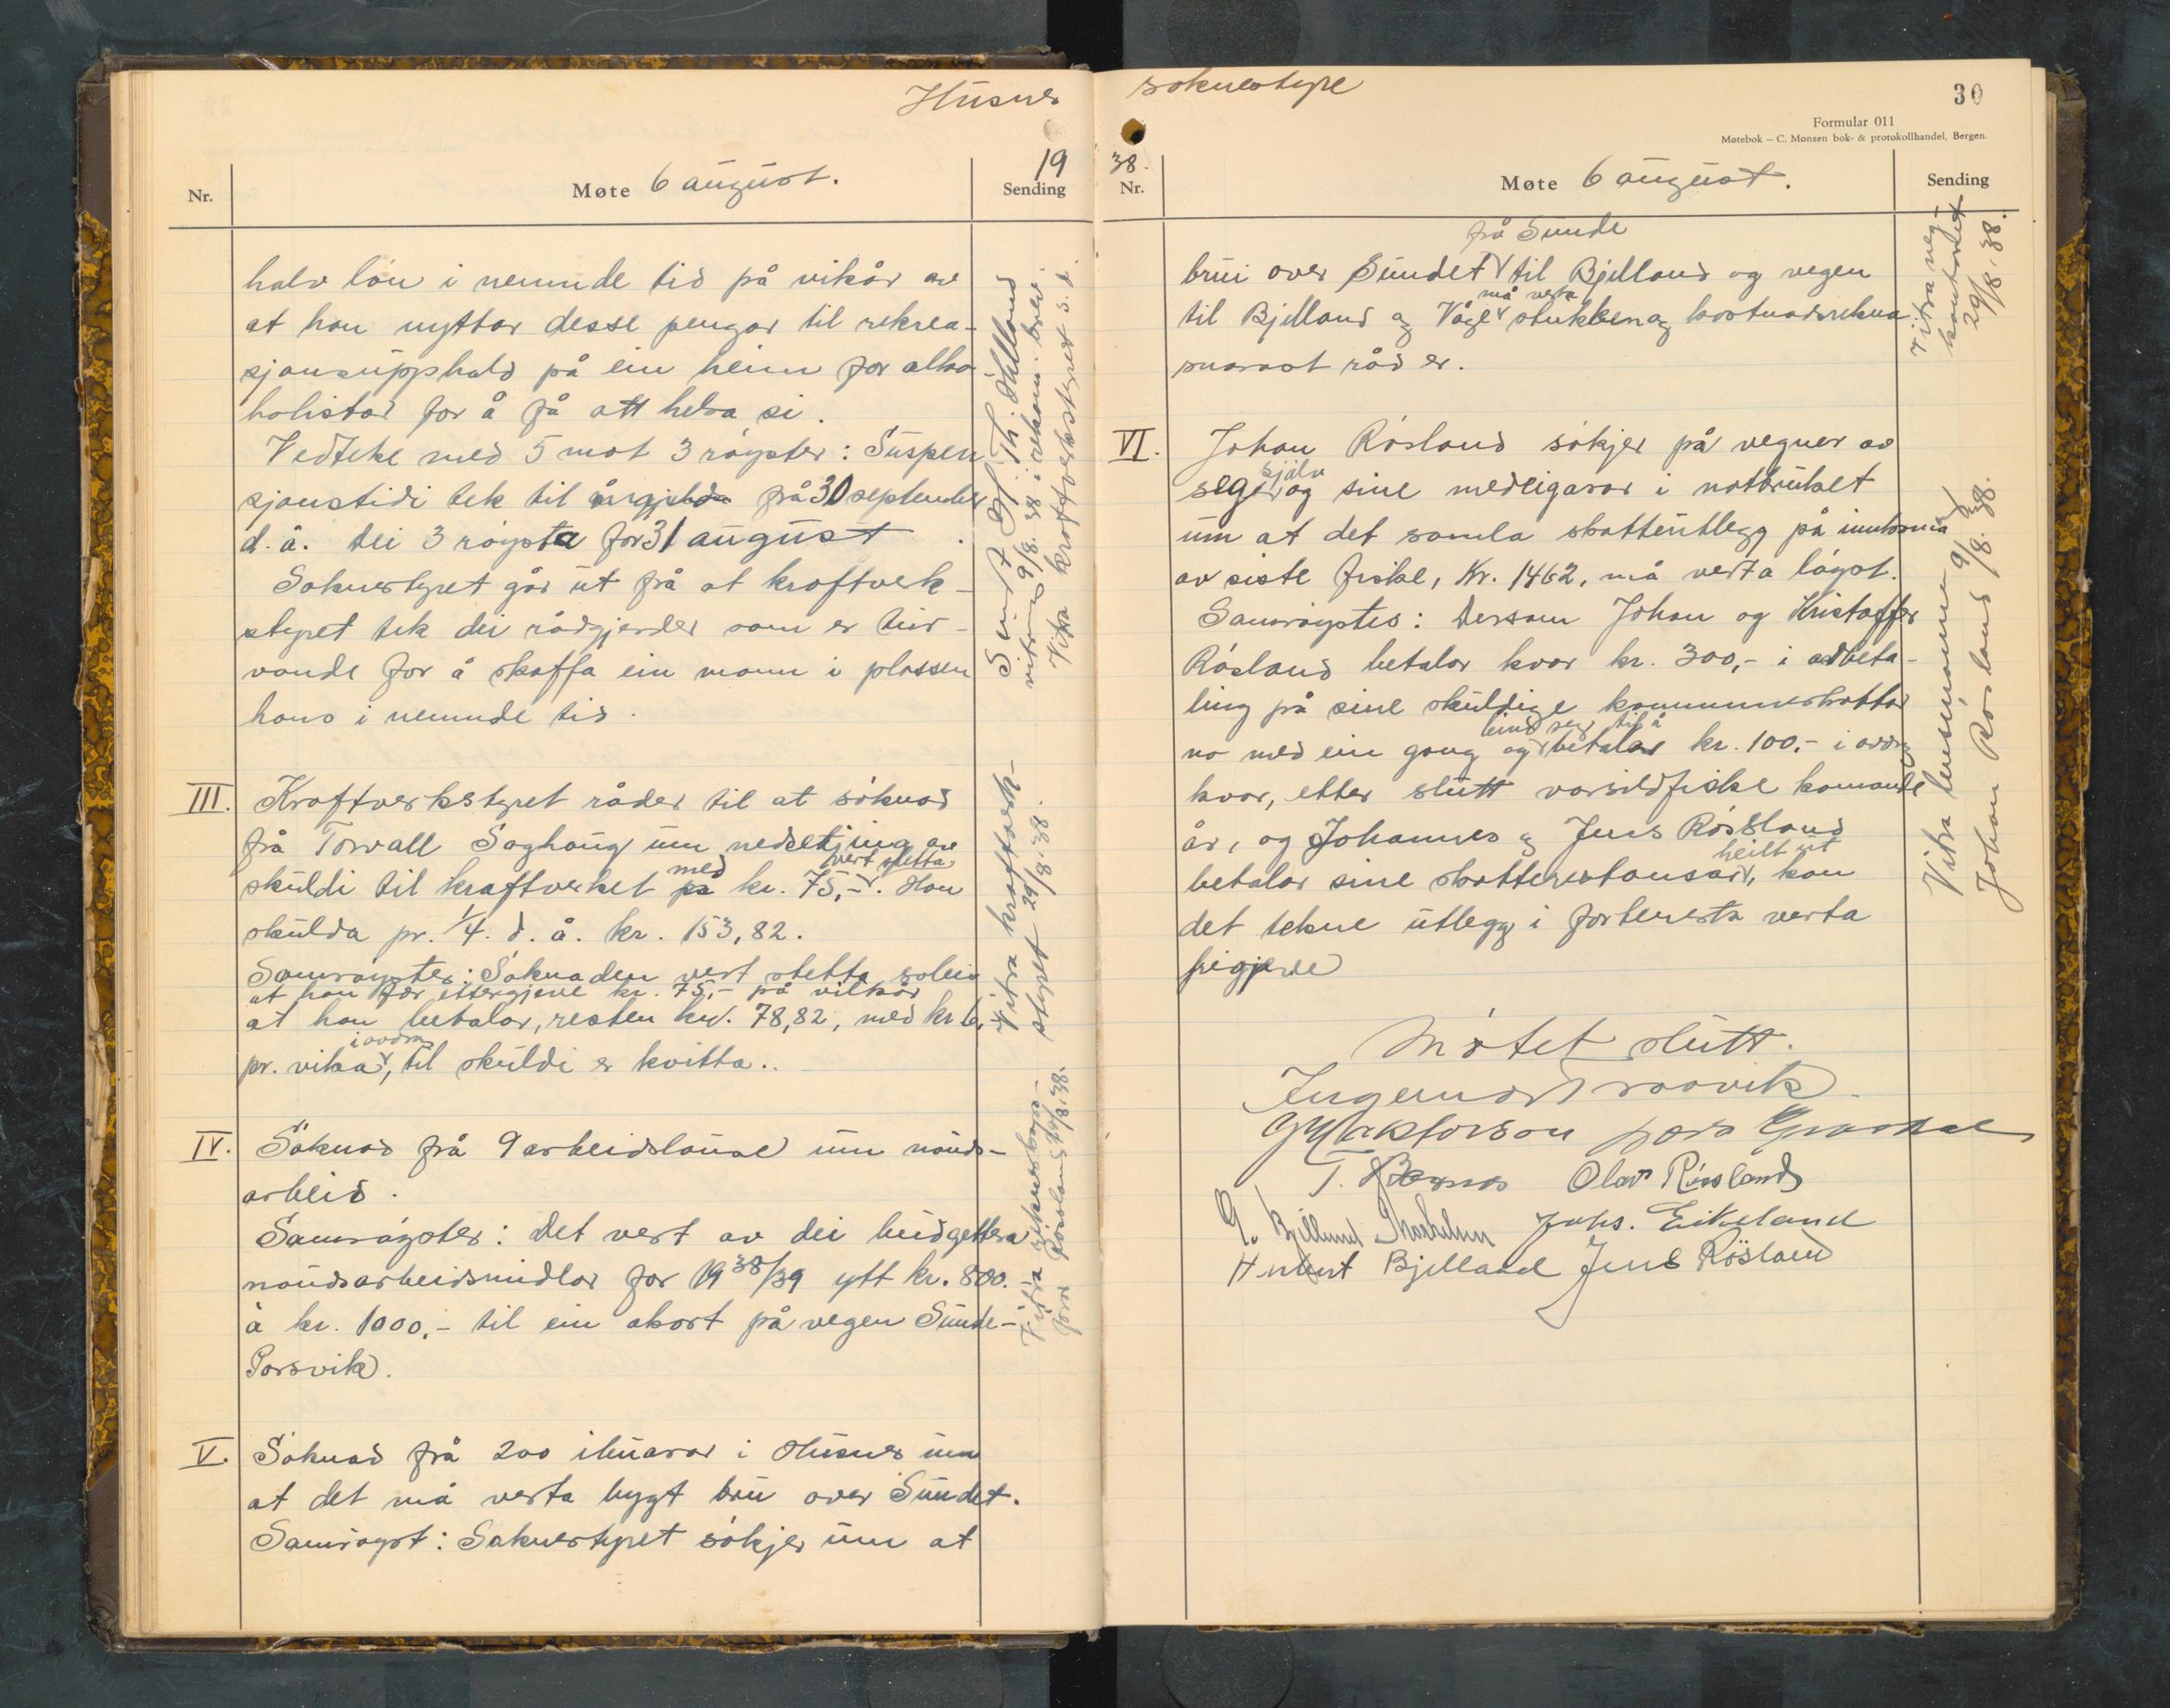 Husnes
19
Nr.
Møte 6 august.
Sending
halv løn i nemnde tid på vilkår av
at han nyttar desse pengar til rekrea-
sjonsupphald på ein heim for alko-
holistar for å få att helsa si.
Vedteke med 5 mot 3 røyster: Suspen
sjonstidi tek til frå 30 september
d. å. Dei 3 røysta for 31 august.
Soknestyret går ut frå at kraftverk-
styret tek dei rådgjerder som er tur-
vande for å skaffa ein mann i plassen
hans i nemnde tid.
III. Kraftverkstyret råder til at søknad
frå Torvall Saghaug um nedsetjing av
skuldi til kraftverket med kr. 75,- vert stetta. Han
skulda pr. 1/4. d. å. kr. 153,82.
Samrøystes: Søknaden vert stetta soleis
at han fær ettergjeve kr. 75,- på vilkår
at han betalar, resten kr. 78,82, med kr
pr. vika i avdrag, til skuldi er kvitta..
IV. Søknad frå 9 arbeidslause um nauds-
arbeid.
Samrøystes: Det vert av dei budgettera
naudsarbeidsmidlar for 1938/39 ytt kr. 800.-
à kr. 1000,- til ein akort på vegen Sunde-
Porsvik.
V. Søknad frå 200 ibuarar i Husnes um
at det må verta bygt bru over Sundet.
Samrøyst: Soknestyret søkjer um at
Sendt Th. Helland
utskrift 9/8. 38 i rekom. brev.
Vitra kraftverkstyret s. d.
Vitra kraftverk-
styret 29/8. 38.
Vitra
Røsland 29/8. 38.
soknestyre
38.
30
Formular 011
Møtebok – C. Monsen bok- & protokollhandel, Bergen.
Nr.
Møte 6 august.
Sending
bru over Sundet på Sunde til Bjelland og vegen
til Bjelland og Våge må verta stukken og kostnadsrekna
snarast råd er.
VI. Johan Røsland søkjer på vegner av
seg sjølv og sine medeigarar i notbruket
um at det samla skatteutlegg på inntekma
av siste fiske, Kr. 1462, må verta løyst.
Samrøystes: Dersom Johan og Kristoffer
Røsland betalar kvar kr. 300,- i avbeta-
ling på sine skuldige kommuneskattar
no med ein gong og bind seg til å betala kr. 100,- i avdrag
kvar, etter slutt vårsildfiske komande
år, og Johannes og Jens Røsland
betalar sine skatterestansar heilt ut, kan
det tekne utlegg i fortenesta verta
frigjeve
Vitra veg-
kontoret
29/8. 38.
Johan Røsland 9/8. 38.
Møtet slutt.
Ingemar Traavik
T. Bernes Olav Røsland
G. Bjelland Johs. Eikeland
Bjelland Jens Røsland